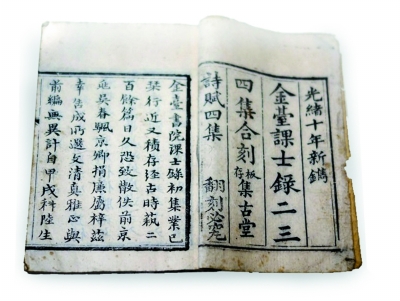 光緒十年新鐫
金臺課士錄二三
四集合刻 板存集古堂
詩賦四集 翻刻必究
金臺書院課士錄初集業已
栞行近又積存經古時萟二
百餘篇日久恐致散佚前京
兆吳春颿京卿捐廉屬梓茲
幸告成所選文清真雅正與
前編無異計自甲戌科陸生